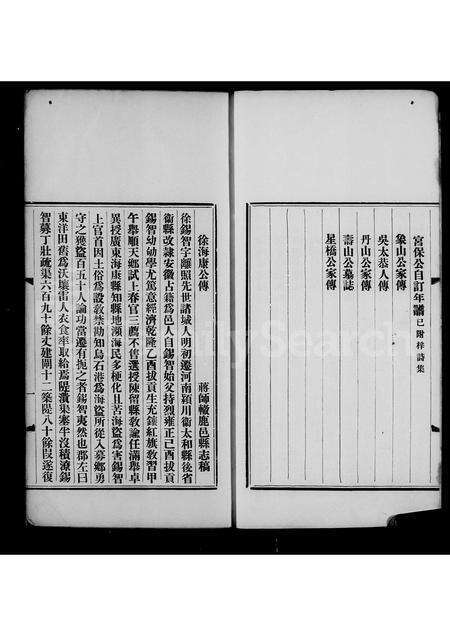 宮保公自訂年譜已附梓詩集
象山公家傳
吳太恭人傳
丹山公家傳
壽山公墓誌
星橋公家傳
徐海康公傳 蔣師轍鹿邑縣志稿
徐錫智字離照先世諸城人明初遷河南潁川衞太和縣後省
衞縣改隸安徽占籍為邑人自錫智始父持烈雍正己酉拔貢
錫智幼劬學尤篤意經濟乾隆乙酉拔貢生充鑲紅旗敎習甲
午舉順天鄉試上春官三薦不售選授陳留縣敎諭任滿舉卓
異授廣東海康縣知縣地瀕海民多梗化且苦海盜為害錫智
上官首因土俗為設敎禁勘知烏石港為海盜所從入募鄉勇
守之獲盜百五十人論功當遷有扼之者錫智夷然也郡左曰
東洋田舊為沃壤雷人衣食率取給焉隄潰渠塞半沒積潦錫
智募丁壯疏渠六百九十餘丈建閘十二築隄八十餘叚遂復